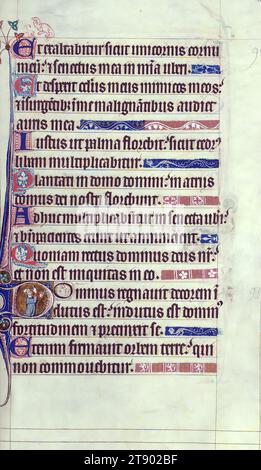 Et exaltabitur sicut unicornis cornu
meu: et senectus mea in mīa ubeī.
Et despexit oculus meus inimicos meos:
et insurgētib; ī me malignātibus audiet
auris mea.
Iustus ut palma florebit: sicut ced
libani multiplicabitur.
Plantati in domo domini: in atriis
domus dei nostri florebunt.
Adhuc multiplicabūtur in senecta
et bn pacientes erunt ut annuncient.
Quoniam rectus dominus deus nr:
et nō est iniquitas in eo.
Dominus regnauit decorem ī
dutus est: indutus est domin
fortitudinem et precinxit se.
Etenim firmauit orbem terre: qui
non commouebitur.
alamy
Image ID: 2T902BF
www.alamy.com